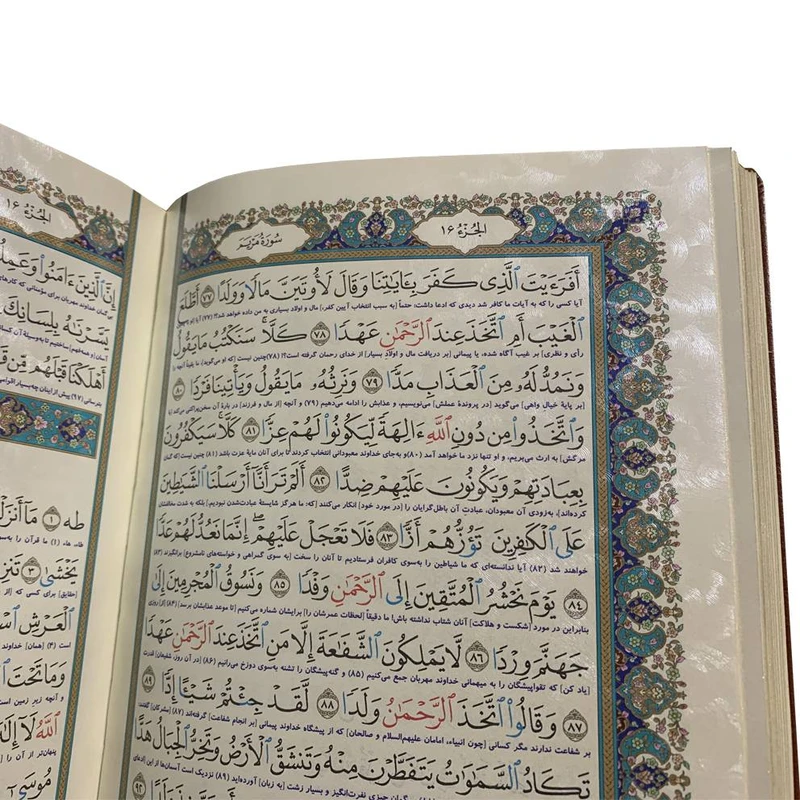 الجزء ١٦
سورة مريم
أَفَرَءَيْتَ ٱلَّذِى كَفَرَ بِـَٔايَـٰتِنَا وَقَالَ لَأُوتَيَنَّ مَالًا وَوَلَدًا ٧٧ أَطَّلَعَ
آیا کسی را که به آیات ما کافر شد دیدی که ادعا داشت: حتماً [به سبب انتخاب آیین کفر،] مال و اولاد بسیاری به من داده خواهد شد؟! (۷۷) آیا [او
ٱلْغَيْبَ أَمِ ٱتَّخَذَ عِندَ ٱلرَّحْمَـٰنِ عَهْدًا ٧٨ كَلَّا سَنَكْتُبُ مَا يَقُولُ
رأی و نظری] بر غیب آگاه شده، یا پیمانی [بر دریافت مال و اولاد بسیار] از خدای رحمان گرفته است؟! (۷۸) چنین نیست [که او می‌گوید]،
وَنَمُدُّ لَهُۥ مِنَ ٱلْعَذَابِ مَدًّا ٧٩ وَنَرِثُهُۥ مَا يَقُولُ وَيَأْتِينَا فَرْدًا ٨٠
بر پایهٔ خیال واهی] می‌گوید [در پروندهٔ عملش] می‌نویسیم، و عذابش را ادامه می‌دهیم (۷۹) و آنچه [از مال و فرزند] در بارهٔ آن سخن‌پراکنی می‌کند
وَٱتَّخَذُوا۟ مِن دُونِ ٱللَّهِ ءَالِهَةً لِّيَكُونُوا۟ لَهُمْ عِزًّا ٨١ كَلَّا سَيَكْفُرُونَ
به ارث می‌بریم، و او تنها نزد ما خواهد آمد (۸۰) و به‌جای خداوند معبودانی انتخاب کردند تا برای آنان مایهٔ عزت باشند (۸۱) چنین نیست [که گمان
بِعِبَادَتِهِمْ وَيَكُونُونَ عَلَيْهِمْ ضِدًّا ٨٢ أَلَمْ تَرَ أَنَّآ أَرْسَلْنَا ٱلشَّيَـٰطِينَ
کرده‌اند]، به‌زودی آن معبودان، عبادتِ آن باطل‌گرایان را [در مورد خود] انکار می‌کنند [که: ما هرگز شایستهٔ عبادت‌شدن نبودیم] بلکه به شدت مخالفتشان
عَلَى ٱلْكَـٰفِرِينَ تَؤُزُّهُمْ أَزًّا ٨٣ فَلَا تَعْجَلْ عَلَيْهِمْ إِنَّمَا نَعُدُّ لَهُمْ عَدًّا
خواهند شد (۸۲) آیا ندانسته‌ای که ما شیاطین را به‌سوی کافران فرستادیم تا آنان را سخت [به سوی گمراهی و خواسته‌های نامشروع] برانگیزند
٨٤ يَوْمَ نَحْشُرُ ٱلْمُتَّقِينَ إِلَى ٱلرَّحْمَـٰنِ وَفْدًا ٨٥ وَنَسُوقُ ٱلْمُجْرِمِينَ إِلَىٰ
بنابراین در مورد [شکست و هلاکت] آنان شتاب نداشته باش! ما دقیقاً [لحظات عمرشان را] برایشان شماره می‌کنیم [تا موعد عذابشان برسد]
جَهَنَّمَ وِرْدًا ٨٦ لَّا يَمْلِكُونَ ٱلشَّفَـٰعَةَ إِلَّا مَنِ ٱتَّخَذَ عِندَ ٱلرَّحْمَـٰنِ عَهْدًا
یاد کن] که تقواپیشگان را به میهمانی خداوند مهربان جمع می‌کنیم (۸۵) و گنه‌پیشگان را تشنه به‌سوی دوزخ می‌رانیم (۸۶) [در آن روز، شفیعان] قدرت
٨٧ وَقَالُوا۟ ٱتَّخَذَ ٱلرَّحْمَـٰنُ وَلَدًا ٨٨ لَّقَدْ جِئْتُمْ شَيْـًٔا إِدًّا ٨٩
بر شفاعت ندارند مگر کسانی [چون انبیاء، امامان علیهم‌السلام و صالحان] که از پیشگاه خداوند پیمانی [بر انجام شفاعت] گرفته‌اند (۸۷) [مشرکان] گفتند:
تَكَادُ ٱلسَّمَـٰوَٰتُ يَتَفَطَّرْنَ مِنْهُ وَتَنشَقُّ ٱلْأَرْضُ وَتَخِرُّ ٱلْجِبَالُ هَدًّا
چیزی نفرت‌انگیز و بسیار زشت [به زبان] آورده‌اید (۸۹) نزدیک است آسمان‌ها از این
٩٢
الجزء ١٦
إِنَّ ٱلَّذِينَ ءَامَنُوا۟ وَعَمِلُوا۟
خداوند مهربان برای مؤمنانی که کارهای
يَسَّرْنَـٰهُ بِلِسَانِكَ
أَهْلَكْنَا قَبْلَهُم مِّن
طه ١ مَآ أَنزَلْنَا
طه، هاء، (۱) ما قرآن را
يَخْشَىٰ ٣
ٱلْعَرْشِ
وَمَا تَحْتَ
و آنچه زیر زمین است
ٱللَّهُ لَآ إِلَـٰهَ
پنهان‌تر از آن را
مُوسَىٰٓ